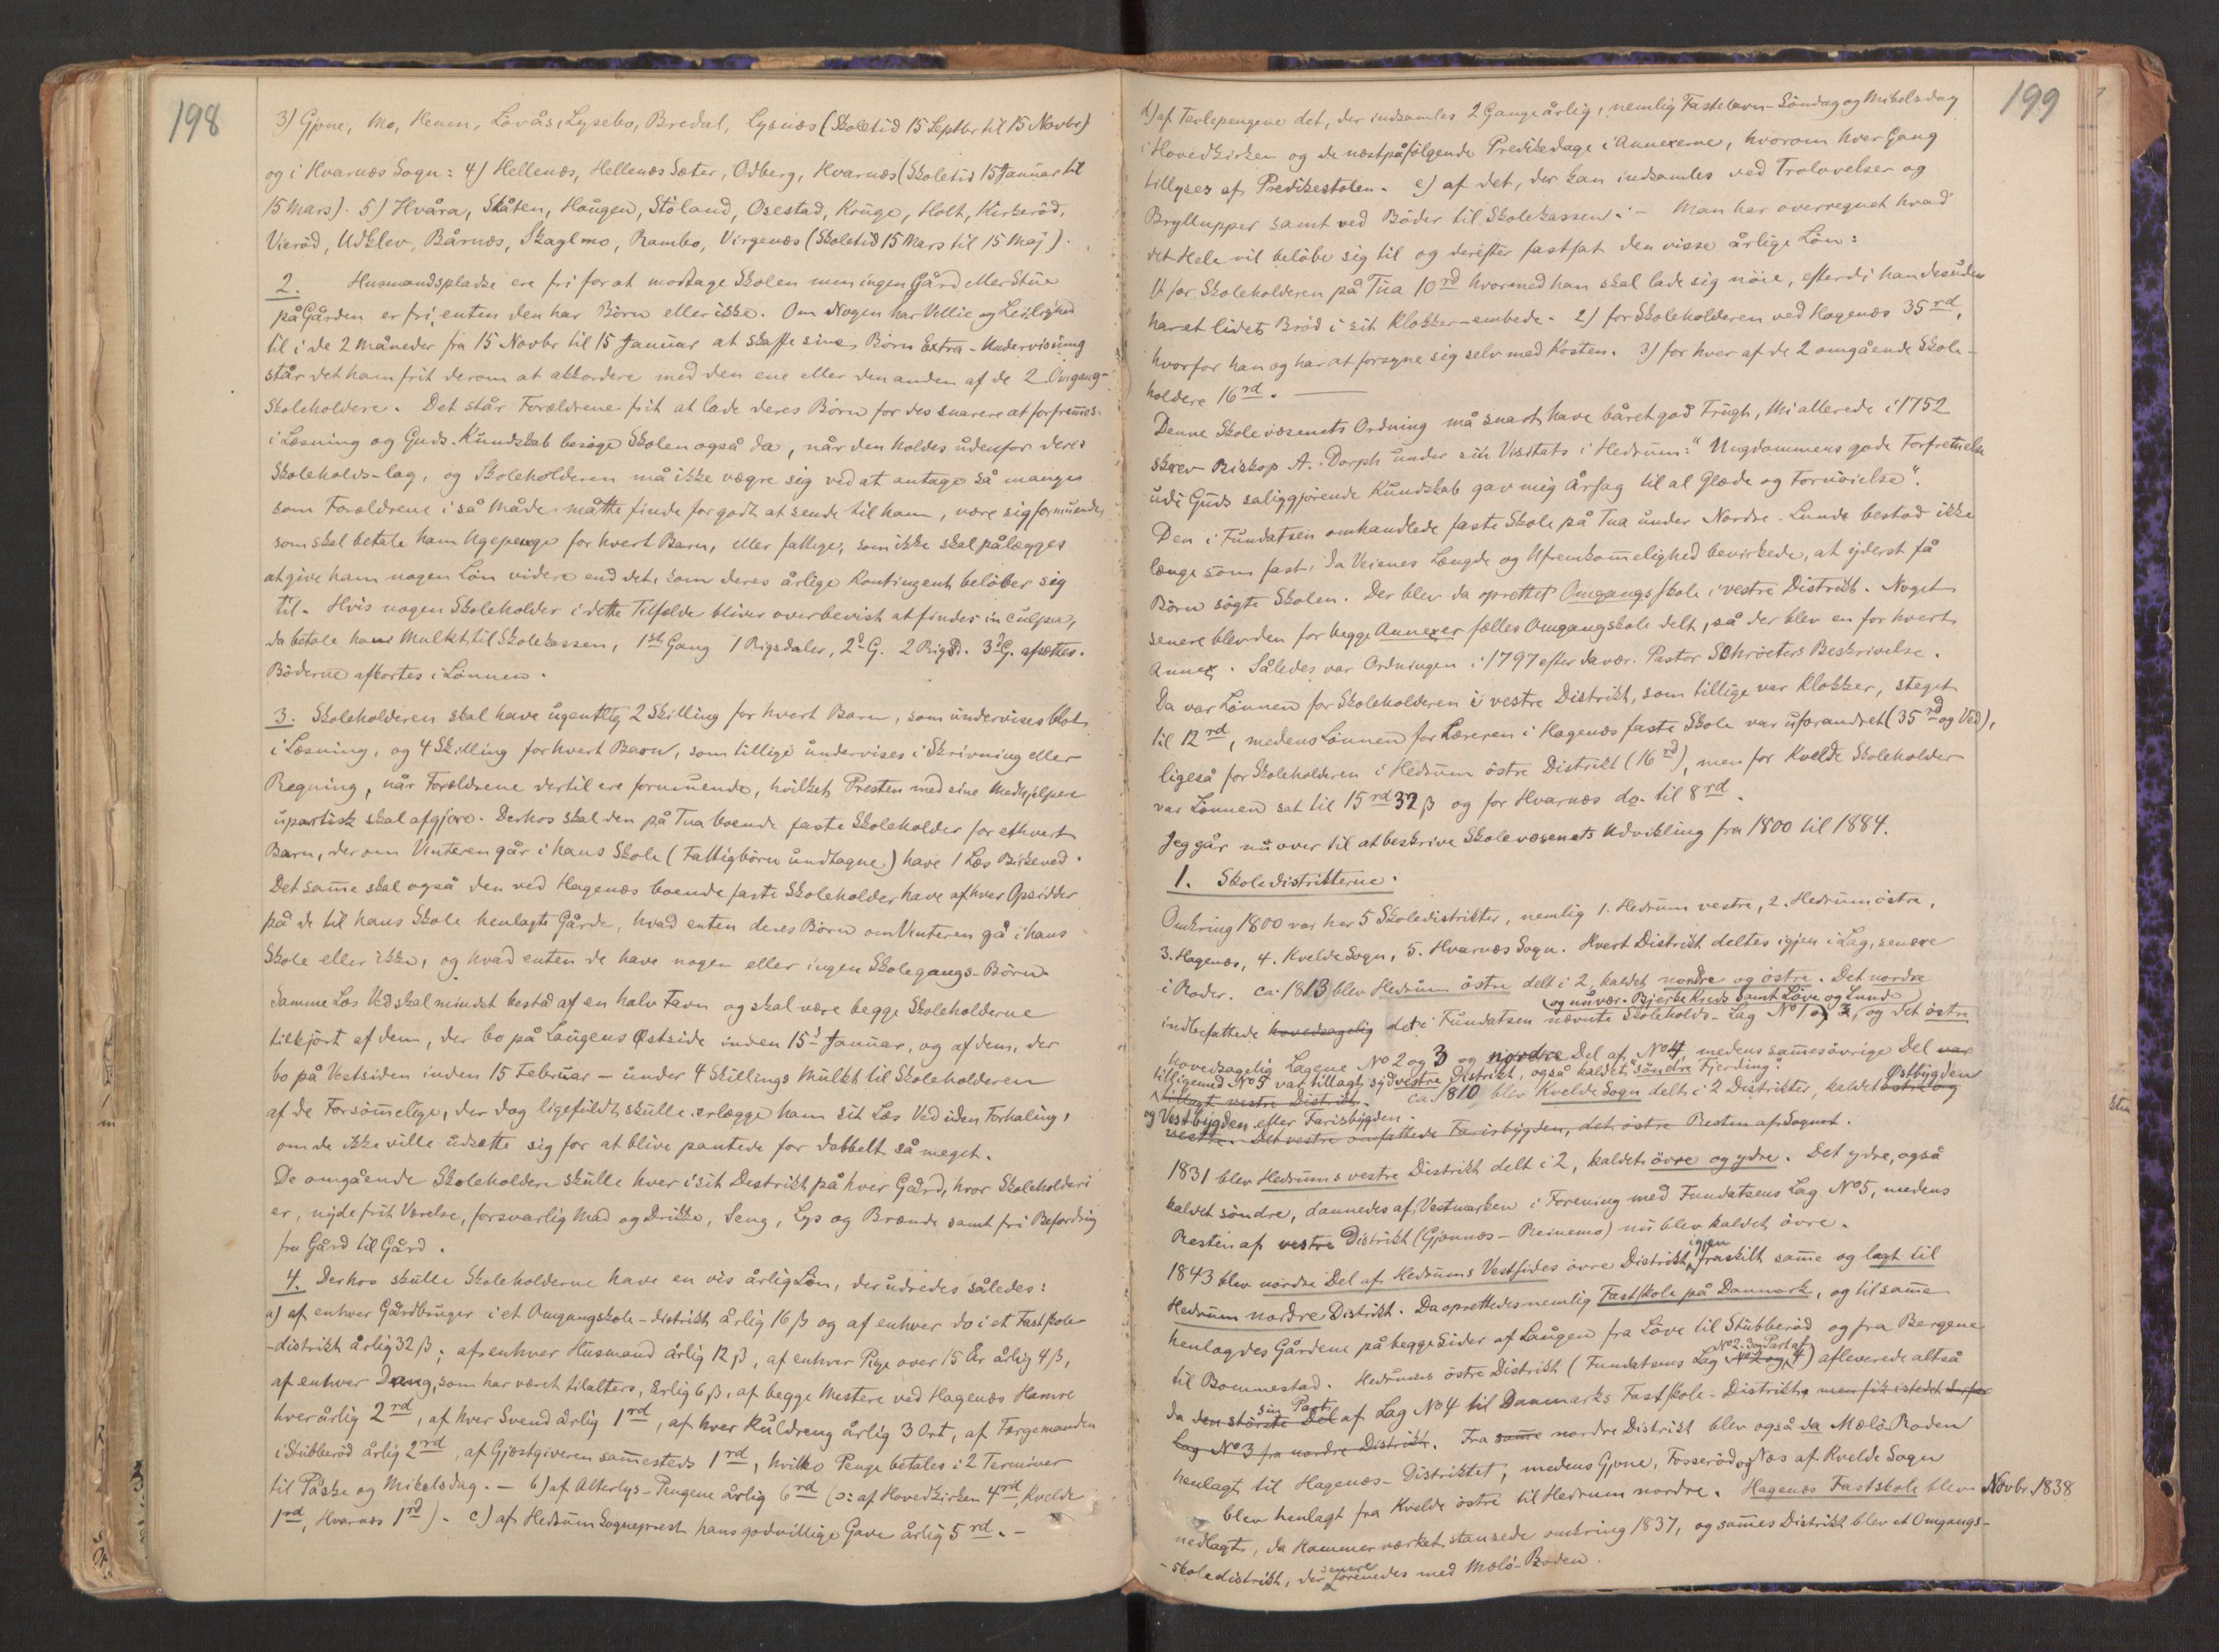 198
3) Gjone, Mo, Heum, Lövås, Lysebo, Bredal, Lysnæs (Skoletid 15 Septbr til 15 Novbr)
og i Hvarnæs Sogn: 4) Hellenæs, Hellenæs Sæter, Odberg, Hvarnæs (Skoletid 15 Januar til
15 Mars). 5) Hvåra, Skåten, Haugen, Stöland, Osestad, Kruge, Holt, Kirkeröd,
Vieröd, Udklev, Bårnæs, Skaglmo, Rambo, Virgenæs (Skoletid 15 Mars til 15 Maj).
2. Husmandspladse ere fri for at modtage Skolen men ingen Gård eller Stue
på Gården er fri, enten den har Börn eller ikke. Om Nogen har Villie og Leilighed
til i de 2 Måneder fra 15 Novbr til 15 Januar at skaffe sine Börn Extra-Undervisning
står det ham frit derom at akkordere med den ene eller den anden af de 2 Omgang-
skoleholdere. Det står Forældrene frit at lade deres Börn for des snarere at forfremes
i Læsning og Guds-Kundskab besöge Skolen også da, når den holdes udenfor deres
Skoleholds-lag, og Skoleholderen må ikke vægre sig ved at antage så mange
som Forældrene i så Måde måtte finde for godt at sende til ham, være sig formuende,
som skal betale ham Ugepenge for hvert Barn, eller fattige, som ikke skal pålægges
at give ham nogen Lön videre end det, som deres årlige Kontingent belöber sig
til. Hvis nogen Skoleholder i dette Tilfælde bliver overbevist at findes in culpa,
da betale han Mulkt til Skolekassen, 1ste Gang 1 Rigsdaler, 2d G. 2 Rigsd. 3d G. afsættes.
Böderne afkortes i Lönnen.
3. Skoleholderen skal have ugentlig 2 Skilling for hvert Barn, som undervises blot
i Læsning, og 4 Skilling for hvert Barn, som tillige undervises i Skrivning eller
Regning, når Forældrene dertil ere formuende, hvilket Presten med sine Medhjelpere
upartisk skal afgjöre. Derhos skal den på Tua boende faste Skoleholder for ethvert
Barn, der om Vinteren går i hans Skole (Fattigbörn undtagne) have 1 Læs Birkeved.
Det same skal også den ved Hagenæs boende faste Skoleholder have af hver Opsidder
på de til hans Skole henlagte Gårde, hvad enten deres Börn om Vinteren gå i hans
Skole eller ikke, og hvad enten de have nogen eller ingen Skolegangs-Börn.
Samme Læs Ved skal mindst bestå af en halv Favn og skal være begge Skoleholderne
tilkjört af dem, der bo på Laugens Østside inden 15d Januar, og af dem, der
bo på Vestsiden inden 15 Februar — under 4 Skillings Mulkt til Skoleholderen
af de Forsömelige, der dog ligefuldt skulle erlægge ham sit Læs Ved uden Forhaling,
om de ikke ville udsætte sig for at blive pantede for dobbelt så meget.
De omgående Skoleholdere skulle hver i sit Distrikt på hver Gård, hvor Skoleholderi
er, nyde frit Værelse, forsvarlig Mad og Drikke, Seng, Lys og Brænde samt fri Befordring
fra Gård til Gård.
4. Derhos skulle Skoleholderne have en vis årlig Lön, der udredes således:
a) af enhver Gårdbruger i et Omgangskole-distrikt årlig 16 β og af enhver do i et Fastskole-
-distrikt årlig 32 β; af enhver Husmand årlig 12 β, af enhver Pige over 15 År årlig 4 β,
af enhver Dreng, som har været tilalters, årlig 6 β, af begge Mestere ved Hagenæs Hamre
hver årlig 2 rd, af hver Svend årlig 1 rd, af hver Kuldreng årlig 3 Ort, af Færgemanden
i Stubberöd årlig 2 rd, af Gjæstgiveren samesteds 1 rd, hvilke Penge betales i 2 Terminer
til Påske og Mikelsdag. — b) af Alterlys-Pengene årlig 6 rd (ɔ: af Hovedkirken 4 rd, Kvelde
1 rd, Hvarnæs 1 rd). c) af Hedrum Sogneprest hans godvillige Gave årlig 5 rd. —
199
d) af Tavlepengene det, der indsamles 2 Gange årlig, nemlig Fastelavns-Söndag og Mikelsdag
i Hovedkirken og de næstpåfölgende Predikedage i Annexerne, hvorom hver Gang
tillyses af Predikestolen. e) af det, der kan indsamles ved Trolovelser og
Bryllupper samt ved Böder til Skolekassen. — Man har overregnet hvad
det Hele vil belöbe sig til og derefter fastsat den visse årlige Lön:
1) for Skoleholderen på Tua 10 rd hvormed han skal lade sig nöie, efterdi han desuden
har et lidet Bröd i sit Klokker-embede. 2) for Skoleholderen ved Hagenæs 35 rd,
hvorfor han og har at forsyne sig selv med Kosten. 3) for hver af de 2 omgående Skole-
holdere 16 rd.
Denne Skolevæsenets Ordning må snart have båret god Frugt, thi allerede i 1752
skrev Biskop A. Dorph under sin Visitats i Hedrum: "Ungdommens gode Forfremelse
udi Guds saliggjörende Kundskab gav mig Årsag til al Glæde og Fornöielse".
Den i Fundatsen omhandlede faste Skole på Tua under Nordre-Lunde bestod ikke
længe som fast, da Veienes Længde og Ufremkomelighed bevirkede, at yderst få
Börn sögte Skolen. Der blev da oprettet Omgangsskole i vestre Distrikt. Noget
senere blev den for begge Annexer fælles Omgangskole delt, så der blev en for hvert
Annex. Således var Ordningen i 1797 efter davær. Pastor Schröeters Beskrivelse.
Da var Lönnen for Skoleholderen i vestre Distrikt, som tillige var Klokker, steget
til 12 rd, medens Lönnen for Læreren i Hagenæs faste Skole var uforandret (35 rd og Ved),
ligeså for Skoleholderen i Hedrum östre Distrikt (16 rd), men for Kvelde Skoleholder
var Lönnen sat til 15 rd 32 β og for Hvarnæs do. til 8 rd.
Jeg går nu over til at beskrive Skolevæsenets Udvikling fra 1800 til 1884.
1. Skoledistrikterne.
Omkring 1800 var her 5 Skoledistrikter, nemlig 1. Hedrum vestre, 2. Hedrum östre,
3. Hagenæs, 4. Kvelde Sogn, 5. Hvarnæs Sogn. Hvert Distrikt deltes igjen i Lag, senere
i Roder. ca. 1813 blev Hedrum östre delt i 2, kaldet nordre og östre. Det nordre
og nuvær. Bjerke Kreds samt Löve og Lunde
indbefattede hovedsagelig det i Fundatsen nævnte Skoleholds-Lag No 1 og 3, og det östre
hovedsagelig Lagene No 2 og 3 og nordre Del af No 4, medens sames övrige Del var
tilligemed No 5 var tillagt sydvestre Distrikt, også kaldet "söndre Fjerding".
tillagt vestre Distrikt. ca. 1810 blev Kvelde Sogn delt i 2 Distrikter, kaldet östre og Østbygden
og Vestbygden eller Farisbygden.
vestre. Det vestre omfattede Farisbygden, det östre Resten af Sognet.
1831 blev Hedrums vestre Distrikt delt i 2, kaldet övre og ydre. Det ydre, også
kaldet söndre, dannedes af Vestmarken i Forening med Fundatsens Lag No 5, medens
Resten af vestre Distrikt (Gjönnæs - Reinemo) nu blev kaldet övre.
1843 blev nordre Del af Hedrums Vestsides övre Distrikt igjen fraskilt same og lagt til
Hedrum nordre Distrikt. Da oprettedes nemlig Fastskole på Danmark, og til same
henlagdes Gårdene på begge Sider af Laugen fra Löve til Stubberöd og fra Bergene
til Bommestad. Hedrums östre Distrikt (Fundatsens Lag No 2 og 4 No 2. 3 og Part af 4) afleverede altså
da den störste Del sin Part af Lag No 4 til Danmarks Fastskole-Distrikt, men fik istedet derfor
Lag No 3 fra nordre Distrikt. Fra same nordre Distrikt blev også da Mælö-Roden
henlagt til Hagenæs-Distriktet, medens Gjone, Fosseröd og Næs af Kvelde Sogn
blev henlagt fra Kvelde östre til Hedrum nordre. Hagenæs Fastskole blev Novbr. 1838
nedlagt, da Hammerværket stansede omkring 1837, og sames Distrikt blev et Omgangs-
-skoledistrikt, der senere forenedes med Mælö-Roden.